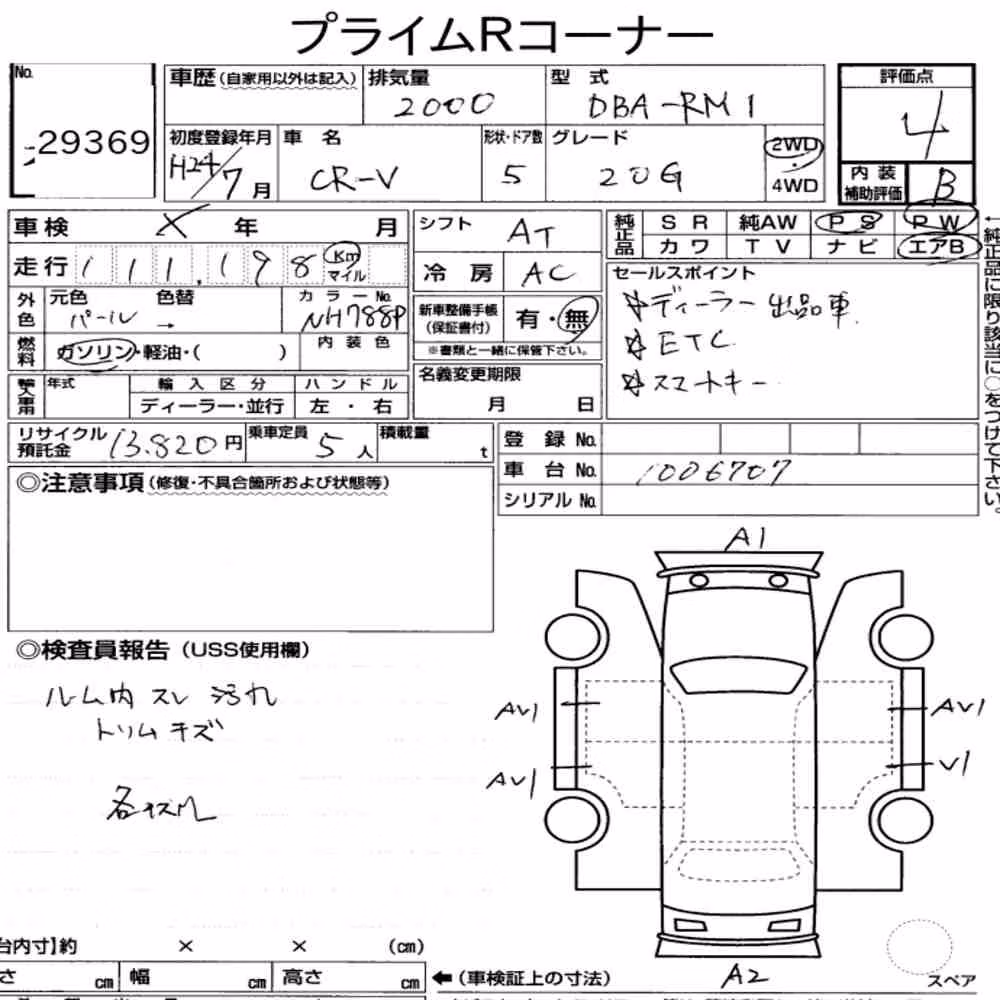 プライムRコーナー
No. 29369
車歴(自家用以外は記入) 排気量 2000 型式 DBA-RM1 評価点 4
初度登録年月 H24/7月 車名 CR-V 形状・ドア数 5 グレード 20G 2WD・4WD
内装補助評価 B
車検 × 年 月
シフト AT
純正品 SR 純AW PS PW
カワ TV ナビ エアB
走行 111,198 Km マイル
冷房 AC
セールスポイント
☆ディーラー出品車
☆ETC
☆スマートキー
外色 元色 パール → 色替 カラーNo. NH788P
新車整備手帳(保証書付) 有・無
※書類と一緒に保管下さい。
燃料 ガソリン・軽油・( ) 内装色
名義変更期限 月 日
年式 輸入区分 ハンドル
ディーラー・並行 左・右
リサイクル預託金 13,820円 乗車定員 5人 積載量 t
登録No.
車台No. 1006707
シリアルNo.
←純正品に限り該当に○をつけて下さい。
◎注意事項(修復・不具合箇所および状態等)
◎検査員報告(USS使用欄)
ルーム内 スレ 汚れ
トリム キズ
A1
AV1 AV1
AV1 V1
A2
台内寸】約 × × (cm)
さ cm 幅 cm 高さ cm ←(車検証上の寸法)
スペア